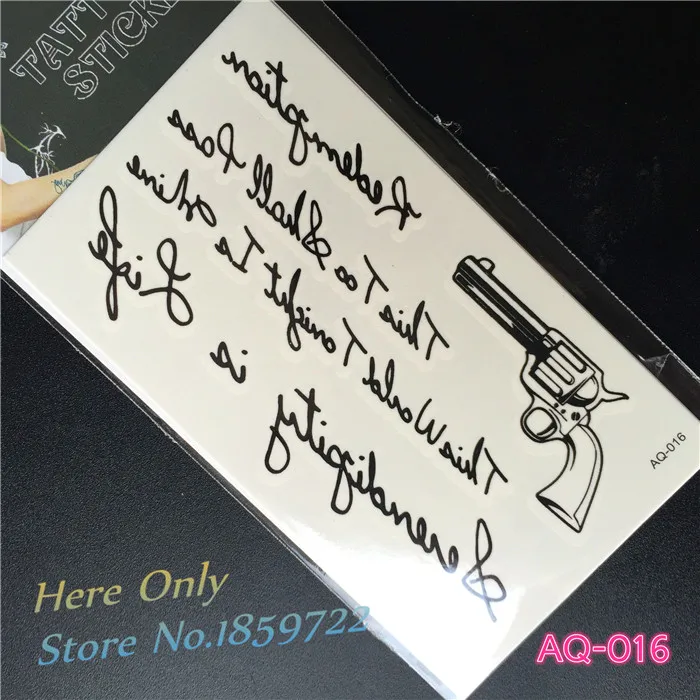 TATT
STICK
Redemption
This Too Shall Pass
This World Tonight Is Mine
Serendipity is Life
AQ-016
Here Only
Store No.1859722
AQ-016